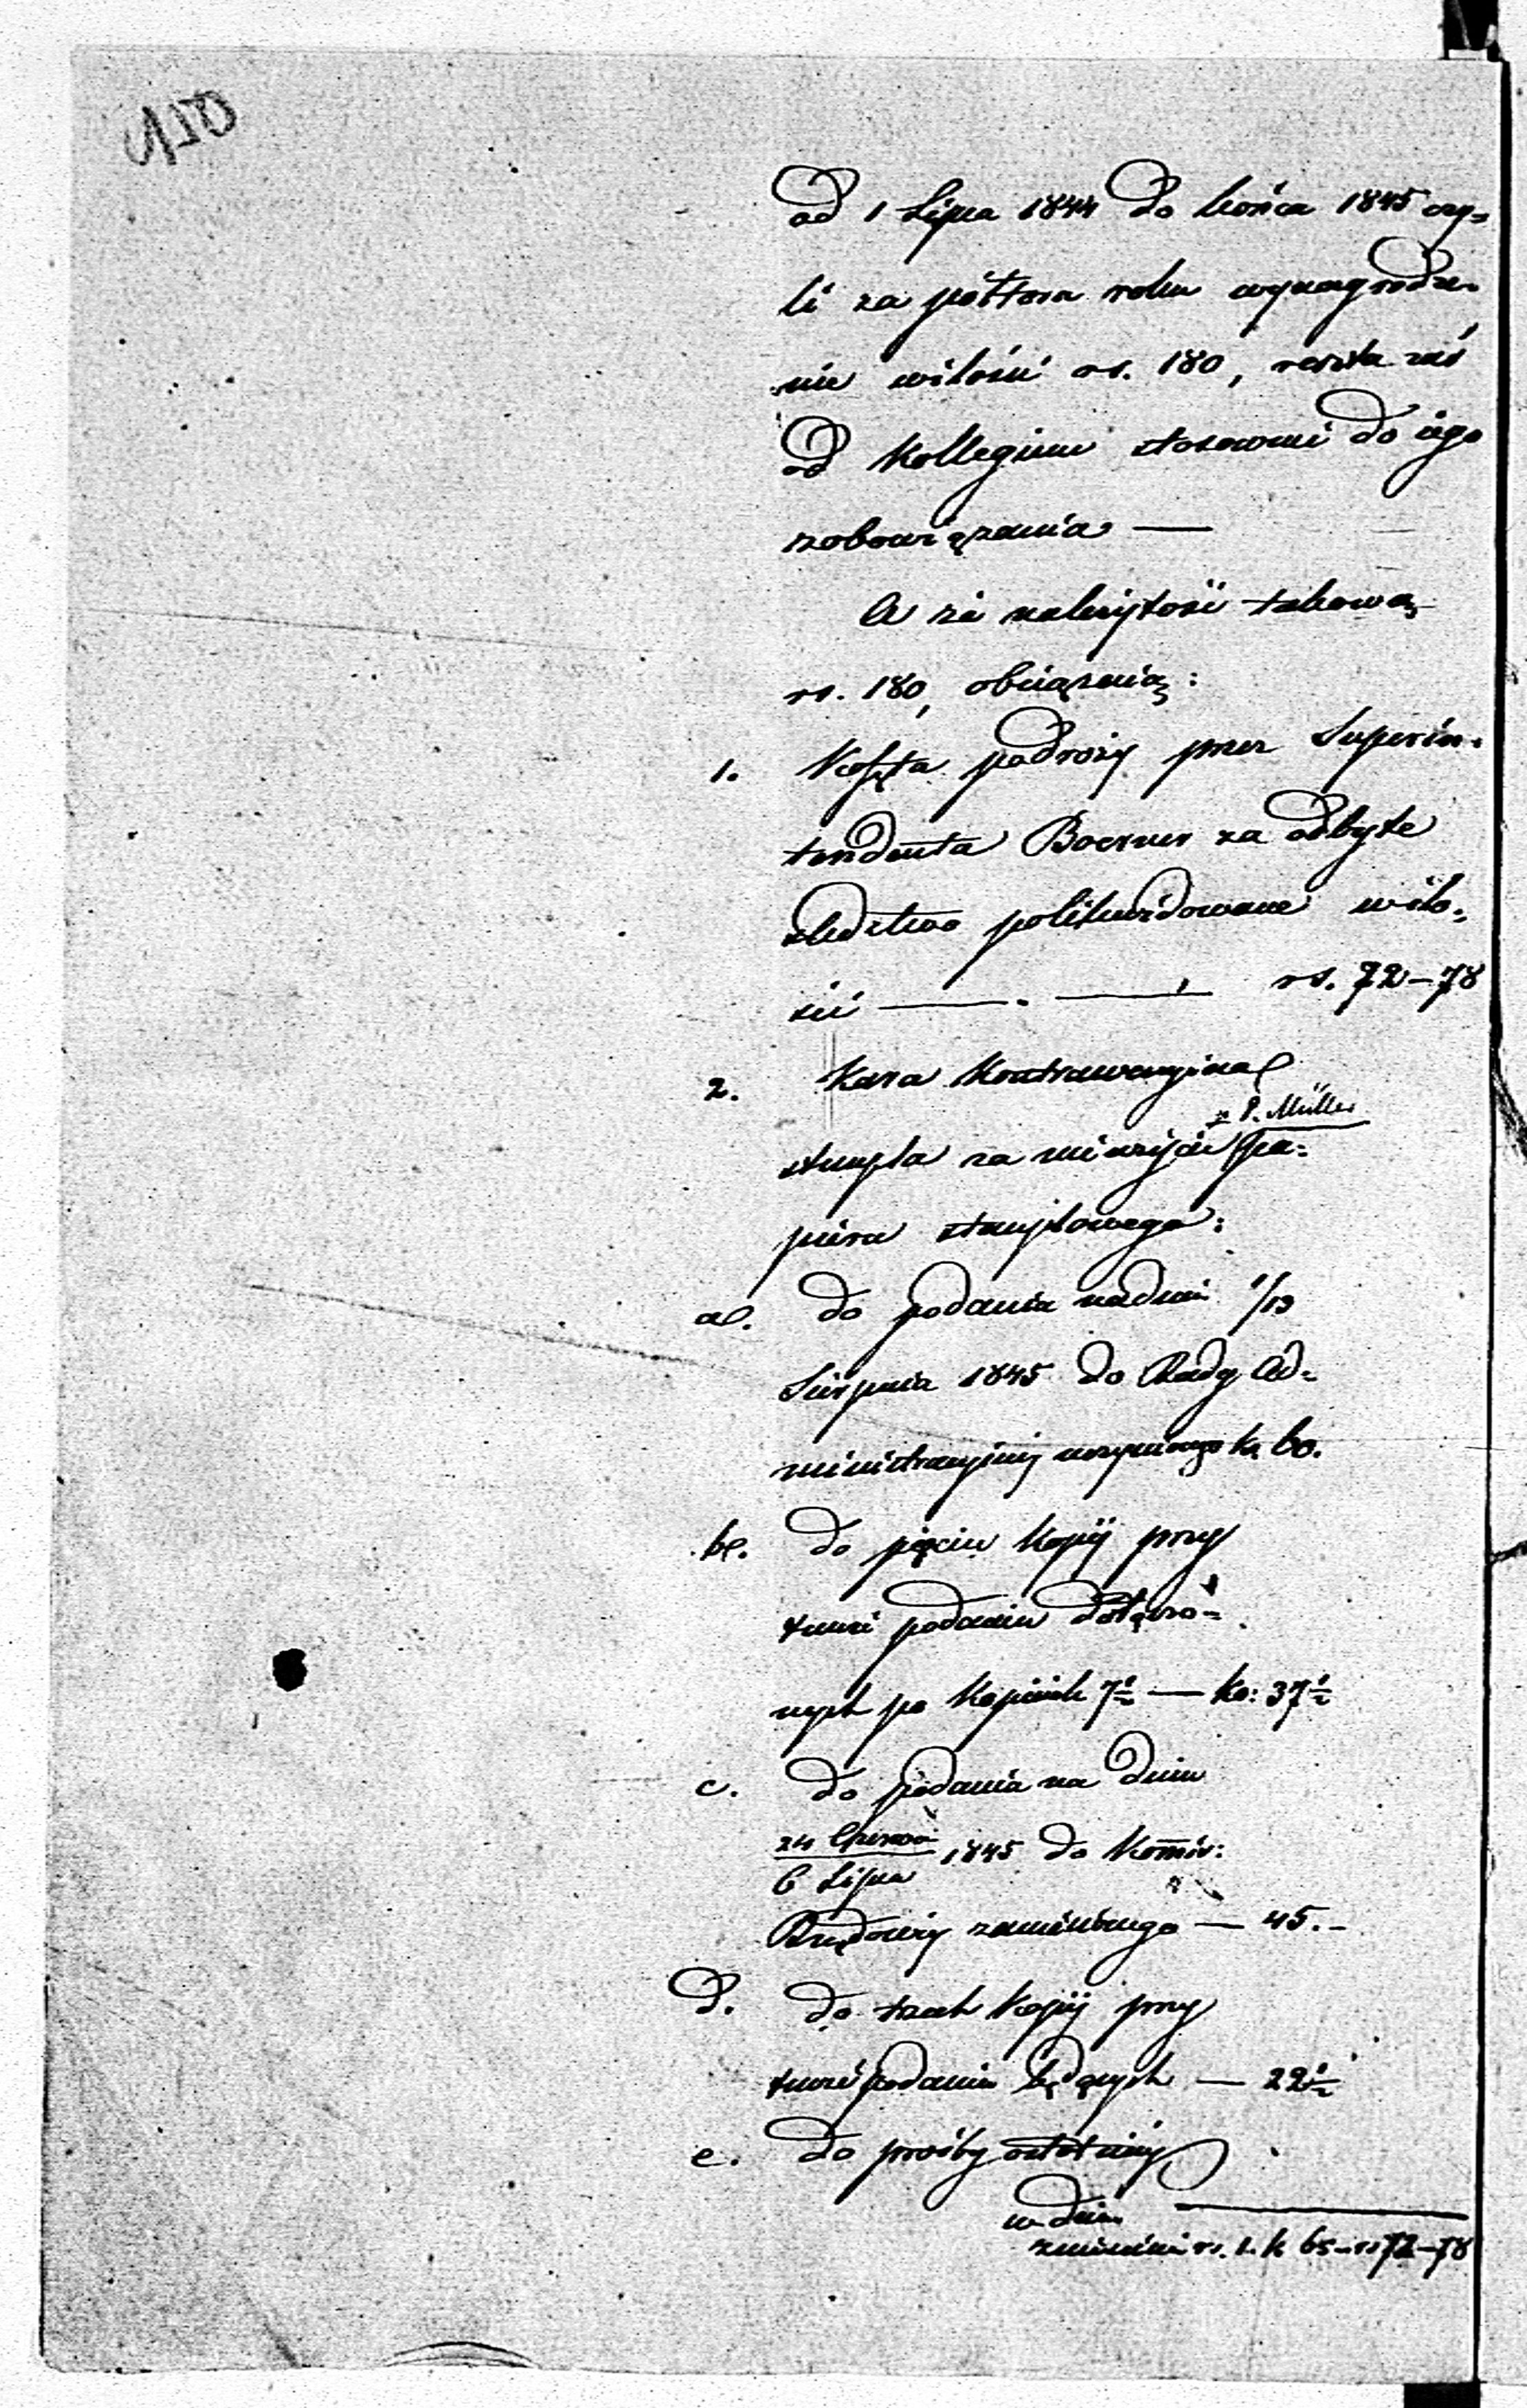 od 1 Lipca 1844 do końca 1845 czy=
li za półtora roku wynagrodze-
nie w ilości rs. 180, reszta zaś
od Kollegium stosownie do jego
zobowiązania —
A że należytość takową
rs. 180, obciążają:
1. Koszta podroży przez Superin-
tendenta Boerner za odbyte
śledztwo polikwidowane w ilo-
ści — — rs. 72-78
2. Kara Kontrawencyjna
P. Müller
stempla za nieużycie pa=
pieru stemplowego:
a. do podania na dniu 1/13
Sierpnia 1845 do Rady Ad=
ministracyjnej uczynionego k. 60.
b. do pięciu Kopij przy
temże podaniu dołączo=
nych po Kopiiek 7½ — ko: 37½
c. do podania na dniu
24 Czerwca
6 Lipca 1845 do Kommis:
Rządowej zaniesionego — 45.-
d. do trzech Kopij przy
temże podaniu będących — 22½
e. do prośby ostatniej
w dniu
rs. 1. k 65 - rs 72-78